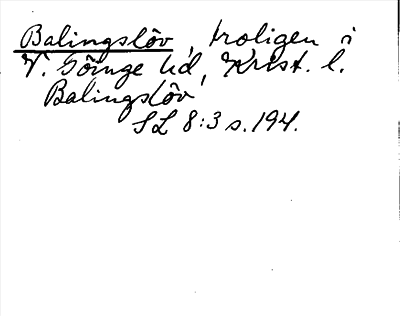 Balingslöv, troligen i
V. Göinge hd, Krist. l.
Balingslöv
SL 8:3 s. 194.